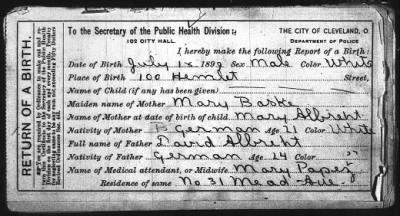 RETURN OF A BIRTH.
To the Secretary of the Public Health Division: THE CITY OF CLEVELAND, O
102 CITY HALL. DEPARTMENT OF POLICE
I hereby make the following Report of a Birth:
Date of Birth July 1st 1892 Sex Male Color White
Place of Birth 100 Hemlet Street,
Name of Child (if any has been given)
Maiden name of Mother Mary Baske
Name of Mother at date of birth of child Mary Albreht
Nativity of Mother German Age 21 Color White
Full name of Father David Albreht
Nativity of Father German Age 24 Color "
Name of Medical attendant, or Midwife Mary Papez
Residence of same No 31 Mead Ave.